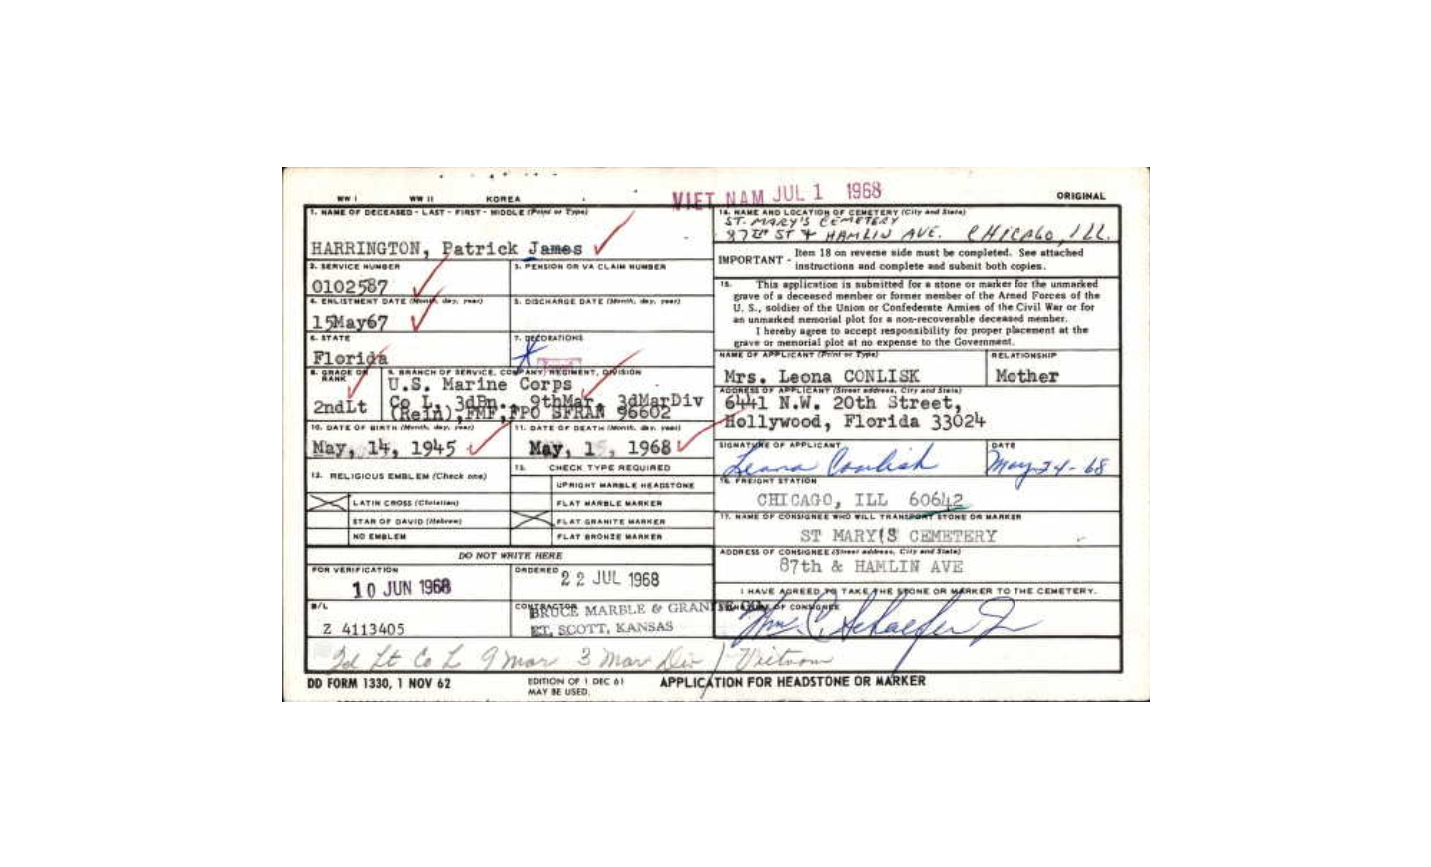 WW I WW II KOREA VIET NAM JUL 1 1968 ORIGINAL
1. NAME OF DECEASED - LAST - FIRST - MIDDLE (Print or Type)
HARRINGTON, Patrick James
2. SERVICE NUMBER
0102587
3. PENSION OR VA CLAIM NUMBER
4. ENLISTMENT DATE (Month, day, year)
15May67
5. DISCHARGE DATE (Month, day, year)
6. STATE
Florida
7. DECORATIONS
8. GRADE OR RANK
2ndLt
9. BRANCH OF SERVICE, COMPANY, REGIMENT, DIVISION
U.S. Marine Corps
Co L, 3dBn., 9thMar, 3dMarDiv
(Rein),FMF,FPO SFRAN 96602
10. DATE OF BIRTH (Month, day, year)
May, 14, 1945
11. DATE OF DEATH (Month, day, year)
May, 1, 1968
12. RELIGIOUS EMBLEM (Check one)
LATIN CROSS (Christian)
STAR OF DAVID (Hebrew)
NO EMBLEM
13. CHECK TYPE REQUIRED
UPRIGHT MARBLE HEADSTONE
FLAT MARBLE MARKER
FLAT GRANITE MARKER
FLAT BRONZE MARKER
DO NOT WRITE HERE
FOR VERIFICATION
10 JUN 1968
ORDERED
22 JUL 1968
B/L
Z 4113405
CONTRACTOR
BRUCE MARBLE & GRANITE CO.
FT. SCOTT, KANSAS
14. NAME AND LOCATION OF CEMETERY (City and State)
ST. MARY'S CEMETERY
87TH ST & HAMLIN AVE. CHICAGO, ILL.
IMPORTANT - Item 18 on reverse side must be completed. See attached
instructions and complete and submit both copies.
15. This application is submitted for a stone or marker for the unmarked
grave of a deceased member or former member of the Armed Forces of the
U. S., soldier of the Union or Confederate Armies of the Civil War or for
an unmarked memorial plot for a non-recoverable deceased member.
I hereby agree to accept responsibility for proper placement at the
grave or memorial plot at no expense to the Government.
NAME OF APPLICANT (Print or Type)
Mrs. Leona CONLISK
RELATIONSHIP
Mother
ADDRESS OF APPLICANT (Street address, City and State)
6441 N.W. 20th Street,
Hollywood, Florida 33024
SIGNATURE OF APPLICANT
Leona Conlisk
DATE
May-24-68
16. FREIGHT STATION
CHICAGO, ILL 60642
17. NAME OF CONSIGNEE WHO WILL TRANSPORT STONE OR MARKER
ST MARY'S CEMETERY
ADDRESS OF CONSIGNEE (Street address, City and State)
87th & HAMLIN AVE
I HAVE AGREED TO TAKE THE STONE OR MARKER TO THE CEMETERY.
SIGNATURE OF CONSIGNEE
Wm. C. Schaefer Jr
2d Lt Co L 9 Mar 3 Mar Div / Vietnam
DD FORM 1330, 1 NOV 62
EDITION OF 1 DEC 61
MAY BE USED.
APPLICATION FOR HEADSTONE OR MARKER